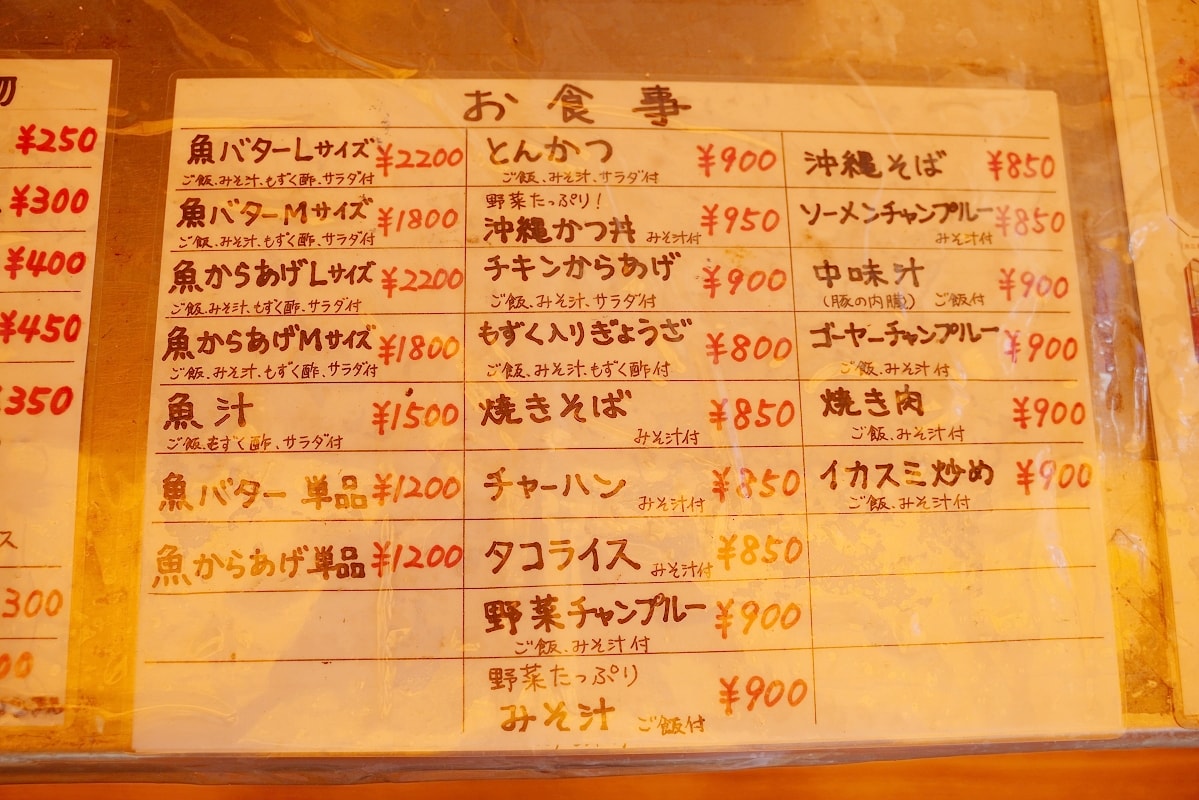 物
¥250
¥300
¥400
¥450
350
ス
300
お食事
魚バターLサイズ ¥2200
ご飯、みそ汁、もずく酢、サラダ付
魚バターMサイズ ¥1800
ご飯、みそ汁、もずく酢、サラダ付
魚からあげLサイズ ¥2200
ご飯、みそ汁、もずく酢、サラダ付
魚からあげMサイズ ¥1800
ご飯、みそ汁、もずく酢、サラダ付
魚汁 ¥1500
ご飯、もずく酢、サラダ付
魚バター 単品 ¥1200
魚からあげ単品 ¥1200
とんかつ ¥900
ご飯、みそ汁、サラダ付
野菜たっぷり!
沖縄かつ丼 みそ汁付 ¥950
チキンからあげ ¥900
ご飯、みそ汁、サラダ付
もずく入りぎょうざ ¥800
ご飯、みそ汁、もずく酢付
焼きそば ¥850
みそ汁付
チャーハン ¥850
みそ汁付
タコライス みそ汁付 ¥850
野菜チャンプルー ¥900
ご飯、みそ汁付
野菜たっぷり
みそ汁 ご飯付 ¥900
沖縄そば ¥850
ソーメンチャンプルー ¥850
みそ汁付
中味汁 ¥900
(豚の内臓) ご飯付
ゴーヤーチャンプルー ¥900
ご飯、みそ汁付
焼き肉 ¥900
ご飯、みそ汁付
イカスミ炒め ¥900
ご飯、みそ汁付